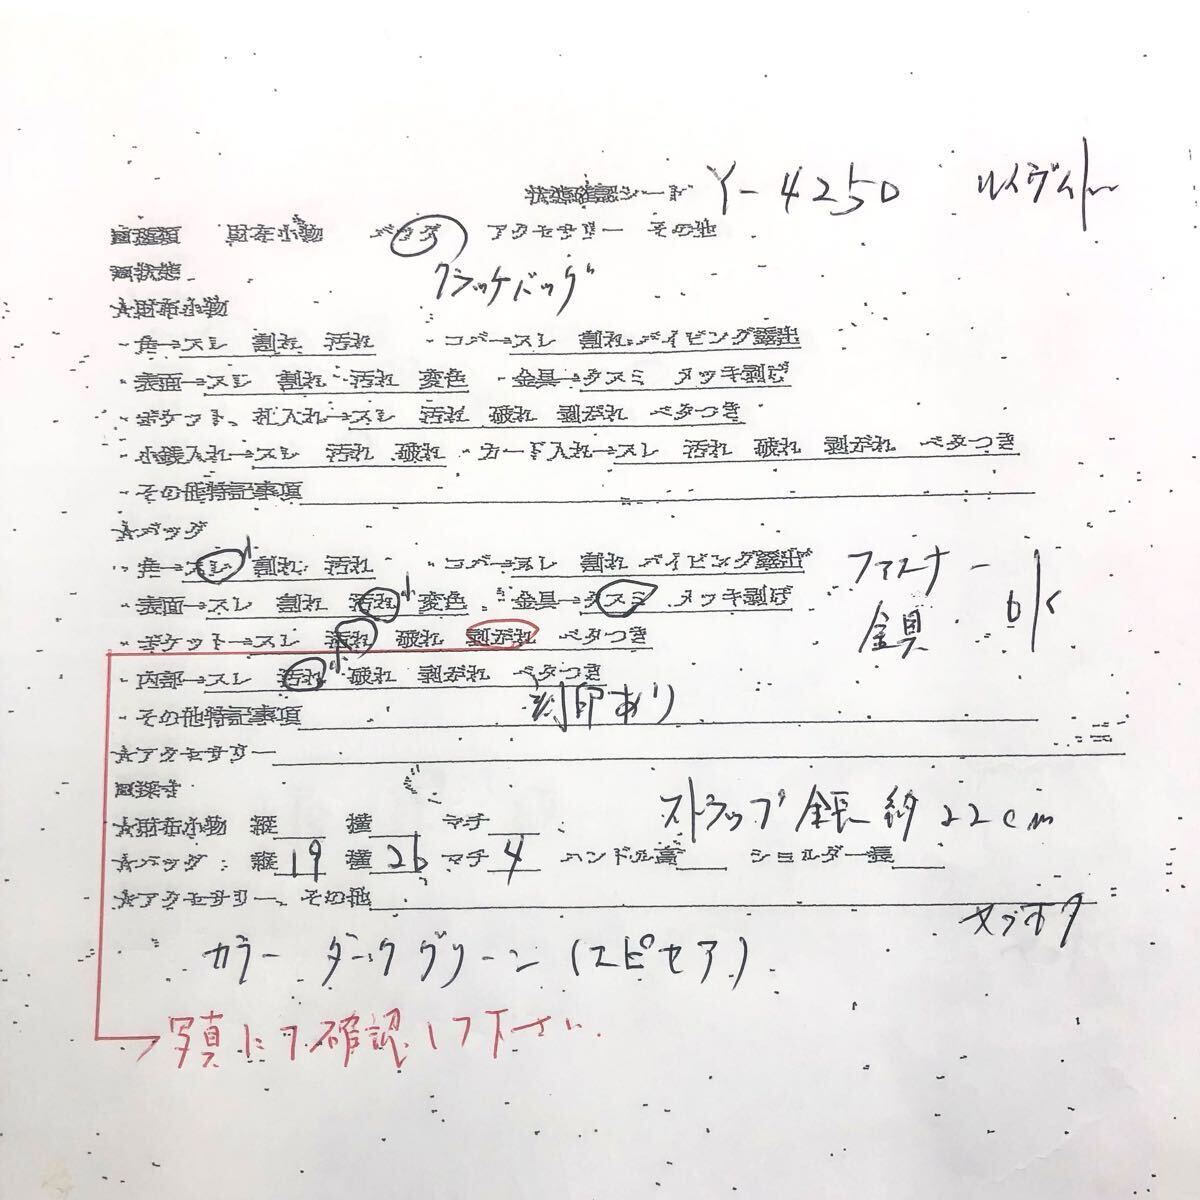 状態確認シート Y-4250 ルイヴィトン
■種類 財布小物 バッグ アクセサリー その他
■状態 クラッチバッグ
★財布小物
・角→スレ 割れ 汚れ ・コバ→スレ 割れ パイピング露出
・表面→スレ 割れ 汚れ 変色 ・金具→クスミ メッキ剥げ
・ポケット、札入れ→スレ 汚れ 破れ 剥がれ ベタつき
・小銭入れ→スレ 汚れ 破れ ・カード入れ→スレ 汚れ 破れ 剥がれ ベタつき
・その他特記事項
★バッグ
・角→スレ 小 割れ 汚れ ・コバ→スレ 割れ パイピング露出 ファスナー
・表面→スレ 割れ 汚れ 小 変色 ・金具→クスミ メッキ剥げ 金具
・ポケット→スレ 汚れ 破れ 剥がれ ベタつき
・内部→スレ 汚れ 小 破れ 剥がれ ベタつき
・その他特記事項 刻印あり
★アクセサリー
■採寸
ストラップ全長約22cm
★財布小物 縦 横 マチ
★バッグ: 縦19 横26 マチ4 ハンドル高 ショルダー長
★アクセサリー、その他
カラー ダークグリーン(エピセア)
写真にて確認して下さい.